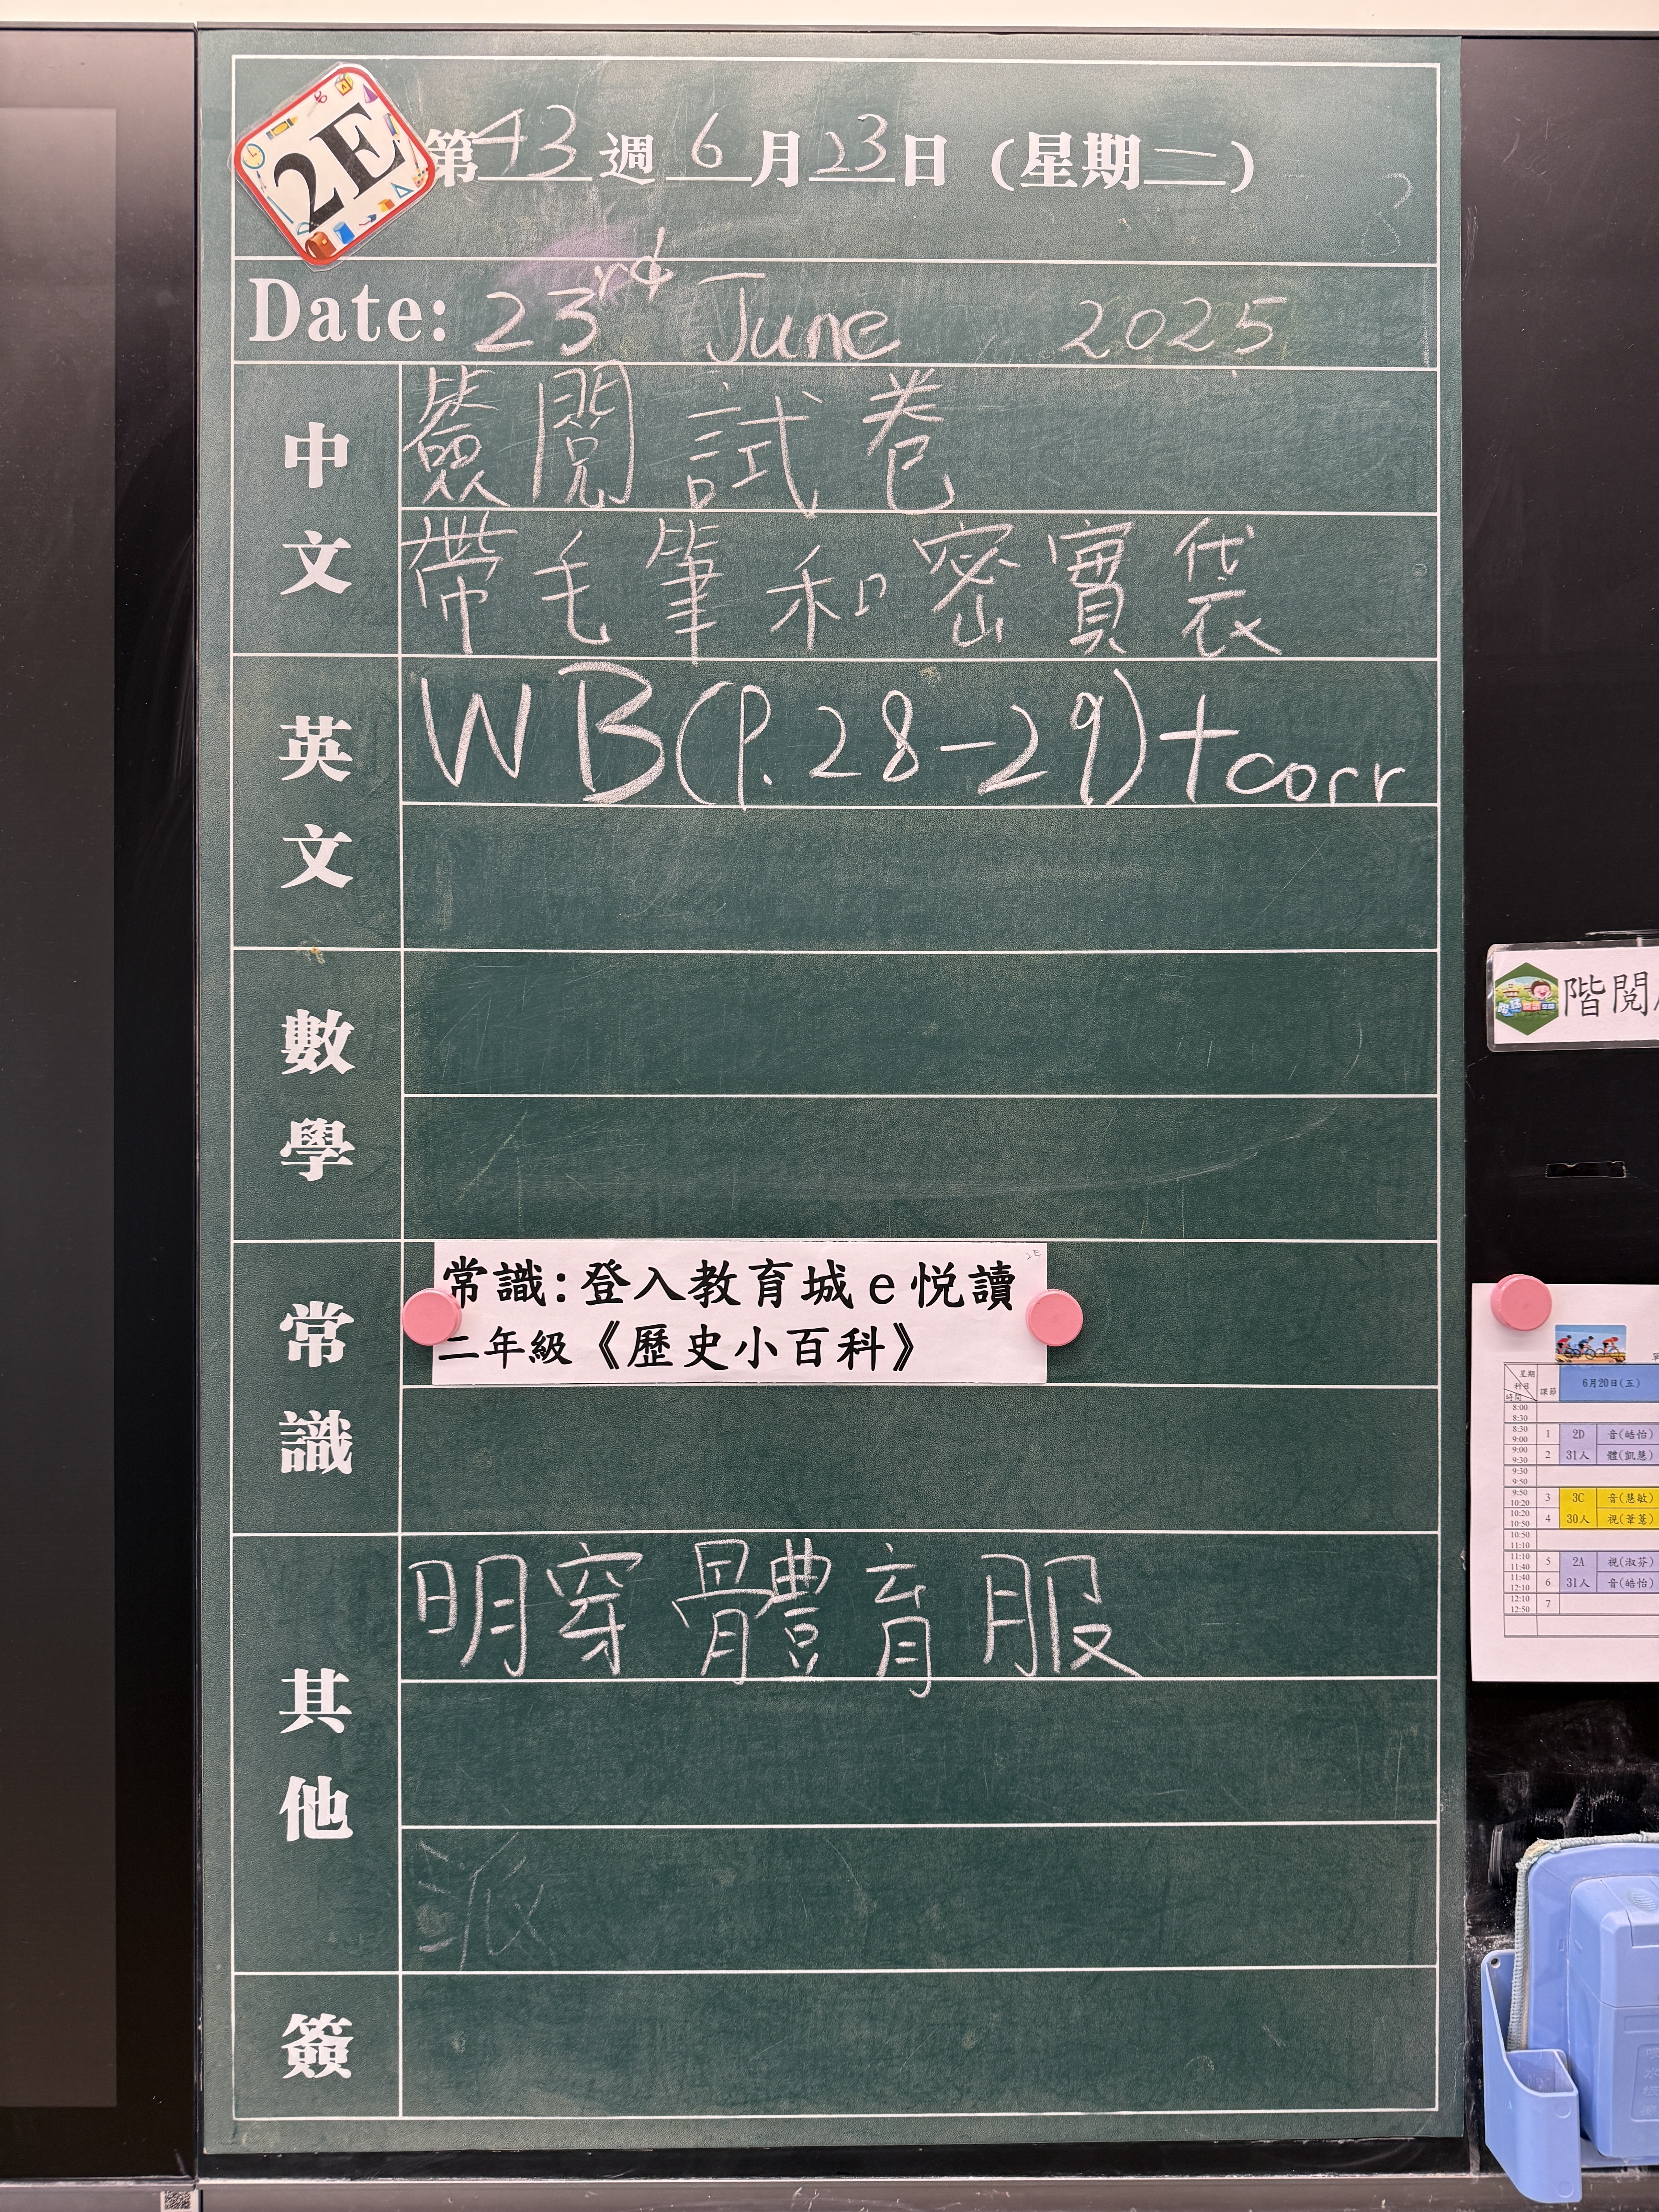 2E
第43週 6月23日 (星期一)
Date: 23rd June 2025
中文
簽閱試卷
帶毛筆和密實袋
英文
WB(P.28-29)+corr
數學
常識
常識:登入教育城e悅讀
二年級《歷史小百科》
其他
明穿體育服
派
簽
階閱
星期
科目
時間
課節
6月20日(五)
8:00
8:30
8:30
9:00
1
2D
音(皓怡)
9:00
9:30
2
31人
體(凱慧)
9:30
9:50
9:50
10:20
3
3C
音(慧敏)
10:20
10:50
4
30人
10:50
11:10
11:10
11:40
5
2A
視(淑芬)
11:40
12:10
6
31人
音(皓怡)
12:10
12:50
7